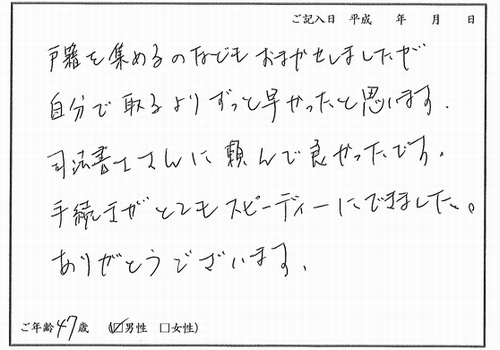 ご記入日 平成 年 月 日
戸籍を集めるのなどもおまかせしましたが
自分で取るよりずっと早かったと思います.
司法書士さんに頼んで良かったです。
手続きがとてもスピーディーにできました。
ありがとうございます.
ご年齢47歳 (☑男性 □女性)